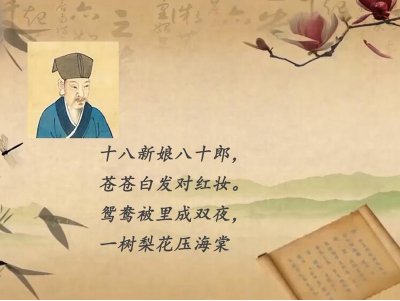 十八新娘八十郎，
苍苍白发对红妆。
鸳鸯被里成双夜，
一树梨花压海棠